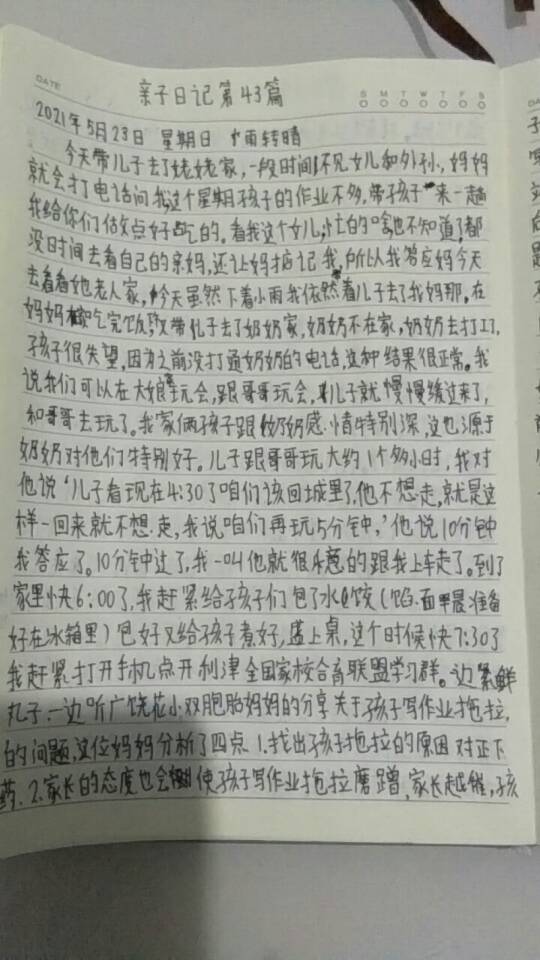 DATE
S M T W T F S
亲子日记第43篇
2021年5月23日 星期日 小雨转晴
今天带儿子去了姥姥家,一段时间不见女儿和外孙,妈妈
就会打电话问我,这个星期孩子的作业不多,带孩子来一趟
我给你们做点好吃的。看我这个女儿,忙的啥也不知道了都
没时间去看自己的亲妈,还让妈惦记我,所以我答应妈今天
去看看她老人家,今天虽然下着小雨我依然着儿子去了我妈那。在
妈妈家吃完饭,又带儿子去了奶奶家,奶奶不在家,奶奶去打工,
孩子很失望,因为之前没打通奶奶的电话,这种结果很正常。我
说我们可以在大娘玩会,跟哥哥玩会,儿子就慢慢缓过来了,
和哥哥去玩了。我家俩孩子跟奶奶感情特别深,这也源于
奶奶对他们特别好。儿子跟哥哥玩大约1个多小时,我对
他说‘儿子看现在4:30了咱们该回城里了,他不想走,就是这
样一回来就不想走,我说咱们再玩5分钟,’他说10分钟
我答应了。10分钟过了,我一叫他就很乐意的跟我上车走了。到了
家里快6:00了,我赶紧给孩子们包了水饺(馅·面早晨准备
好在冰箱里)包好又给孩子煮好,盛上桌,这个时候快7:30了
我赶紧打开手机点开利津全国家校合育联盟学习群。边氽鲜
丸子,一边听广饶花小双胞胎妈妈的分享关于孩子写作业拖拉,
的问题,这位妈妈分析了四点 1.找出孩子拖拉的原因 对正下
药.2.家长的态度也会使孩子写作业拖拉磨蹭,家长越催,孩